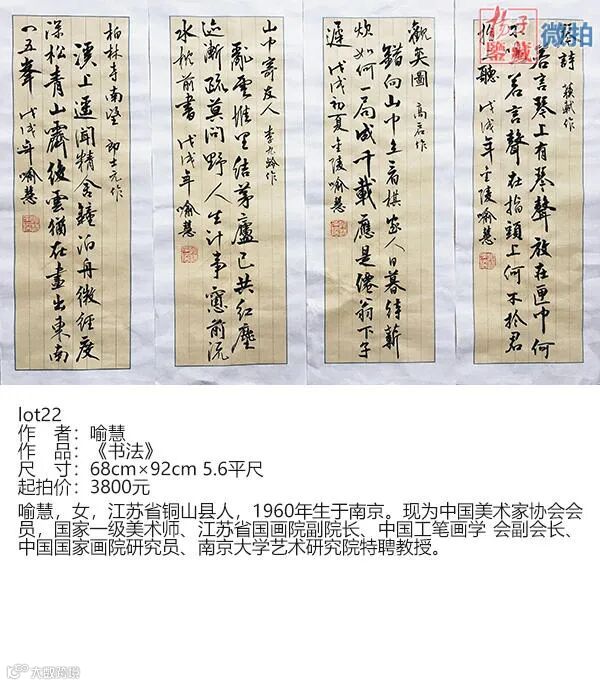 扬子
鉴藏
微拍
琴詩 蘇軾作
若言琴上有琴聲放在匣中何
不鳴若言聲在指頭上何不於君
指上聽 戊戌年金陵喻慧
觀奕圖 高启作
錯向山中立看棋家人日暮待薪
炊如何一局成千載應是僊翁下子
遲 戊戌初夏金陵喻慧
山中寄友人 李九齡作
亂雲堆里結茅廬已共紅塵
迹漸疏莫問野人生計事窓前流
水枕前書 戊戌年喻慧
柏林寺南望 郎士元作
溪上遥聞精舍鐘泊舟微徑度
深松青山霽後雲猶在畫出東南
一五峯 戊戌年喻慧
lot22
作 者：喻慧
作 品：《书法》
尺 寸：68cm×92cm 5.6平尺
起拍价：3800元
喻慧，女，江苏省铜山县人，1960年生于南京。现为中国美术家协会会
员，国家一级美术师、江苏省国画院副院长、中国工笔画学 会副会长、
中国国家画院研究员、南京大学艺术研究院特聘教授。
大数跨境